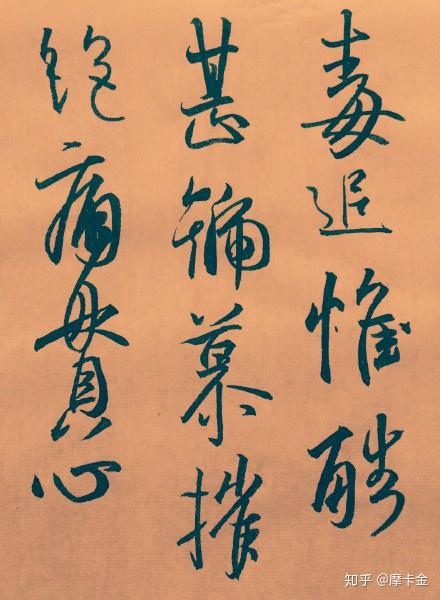 毒追惟酷
甚號慕摧
絶痛貫心
知乎 @摩卡金